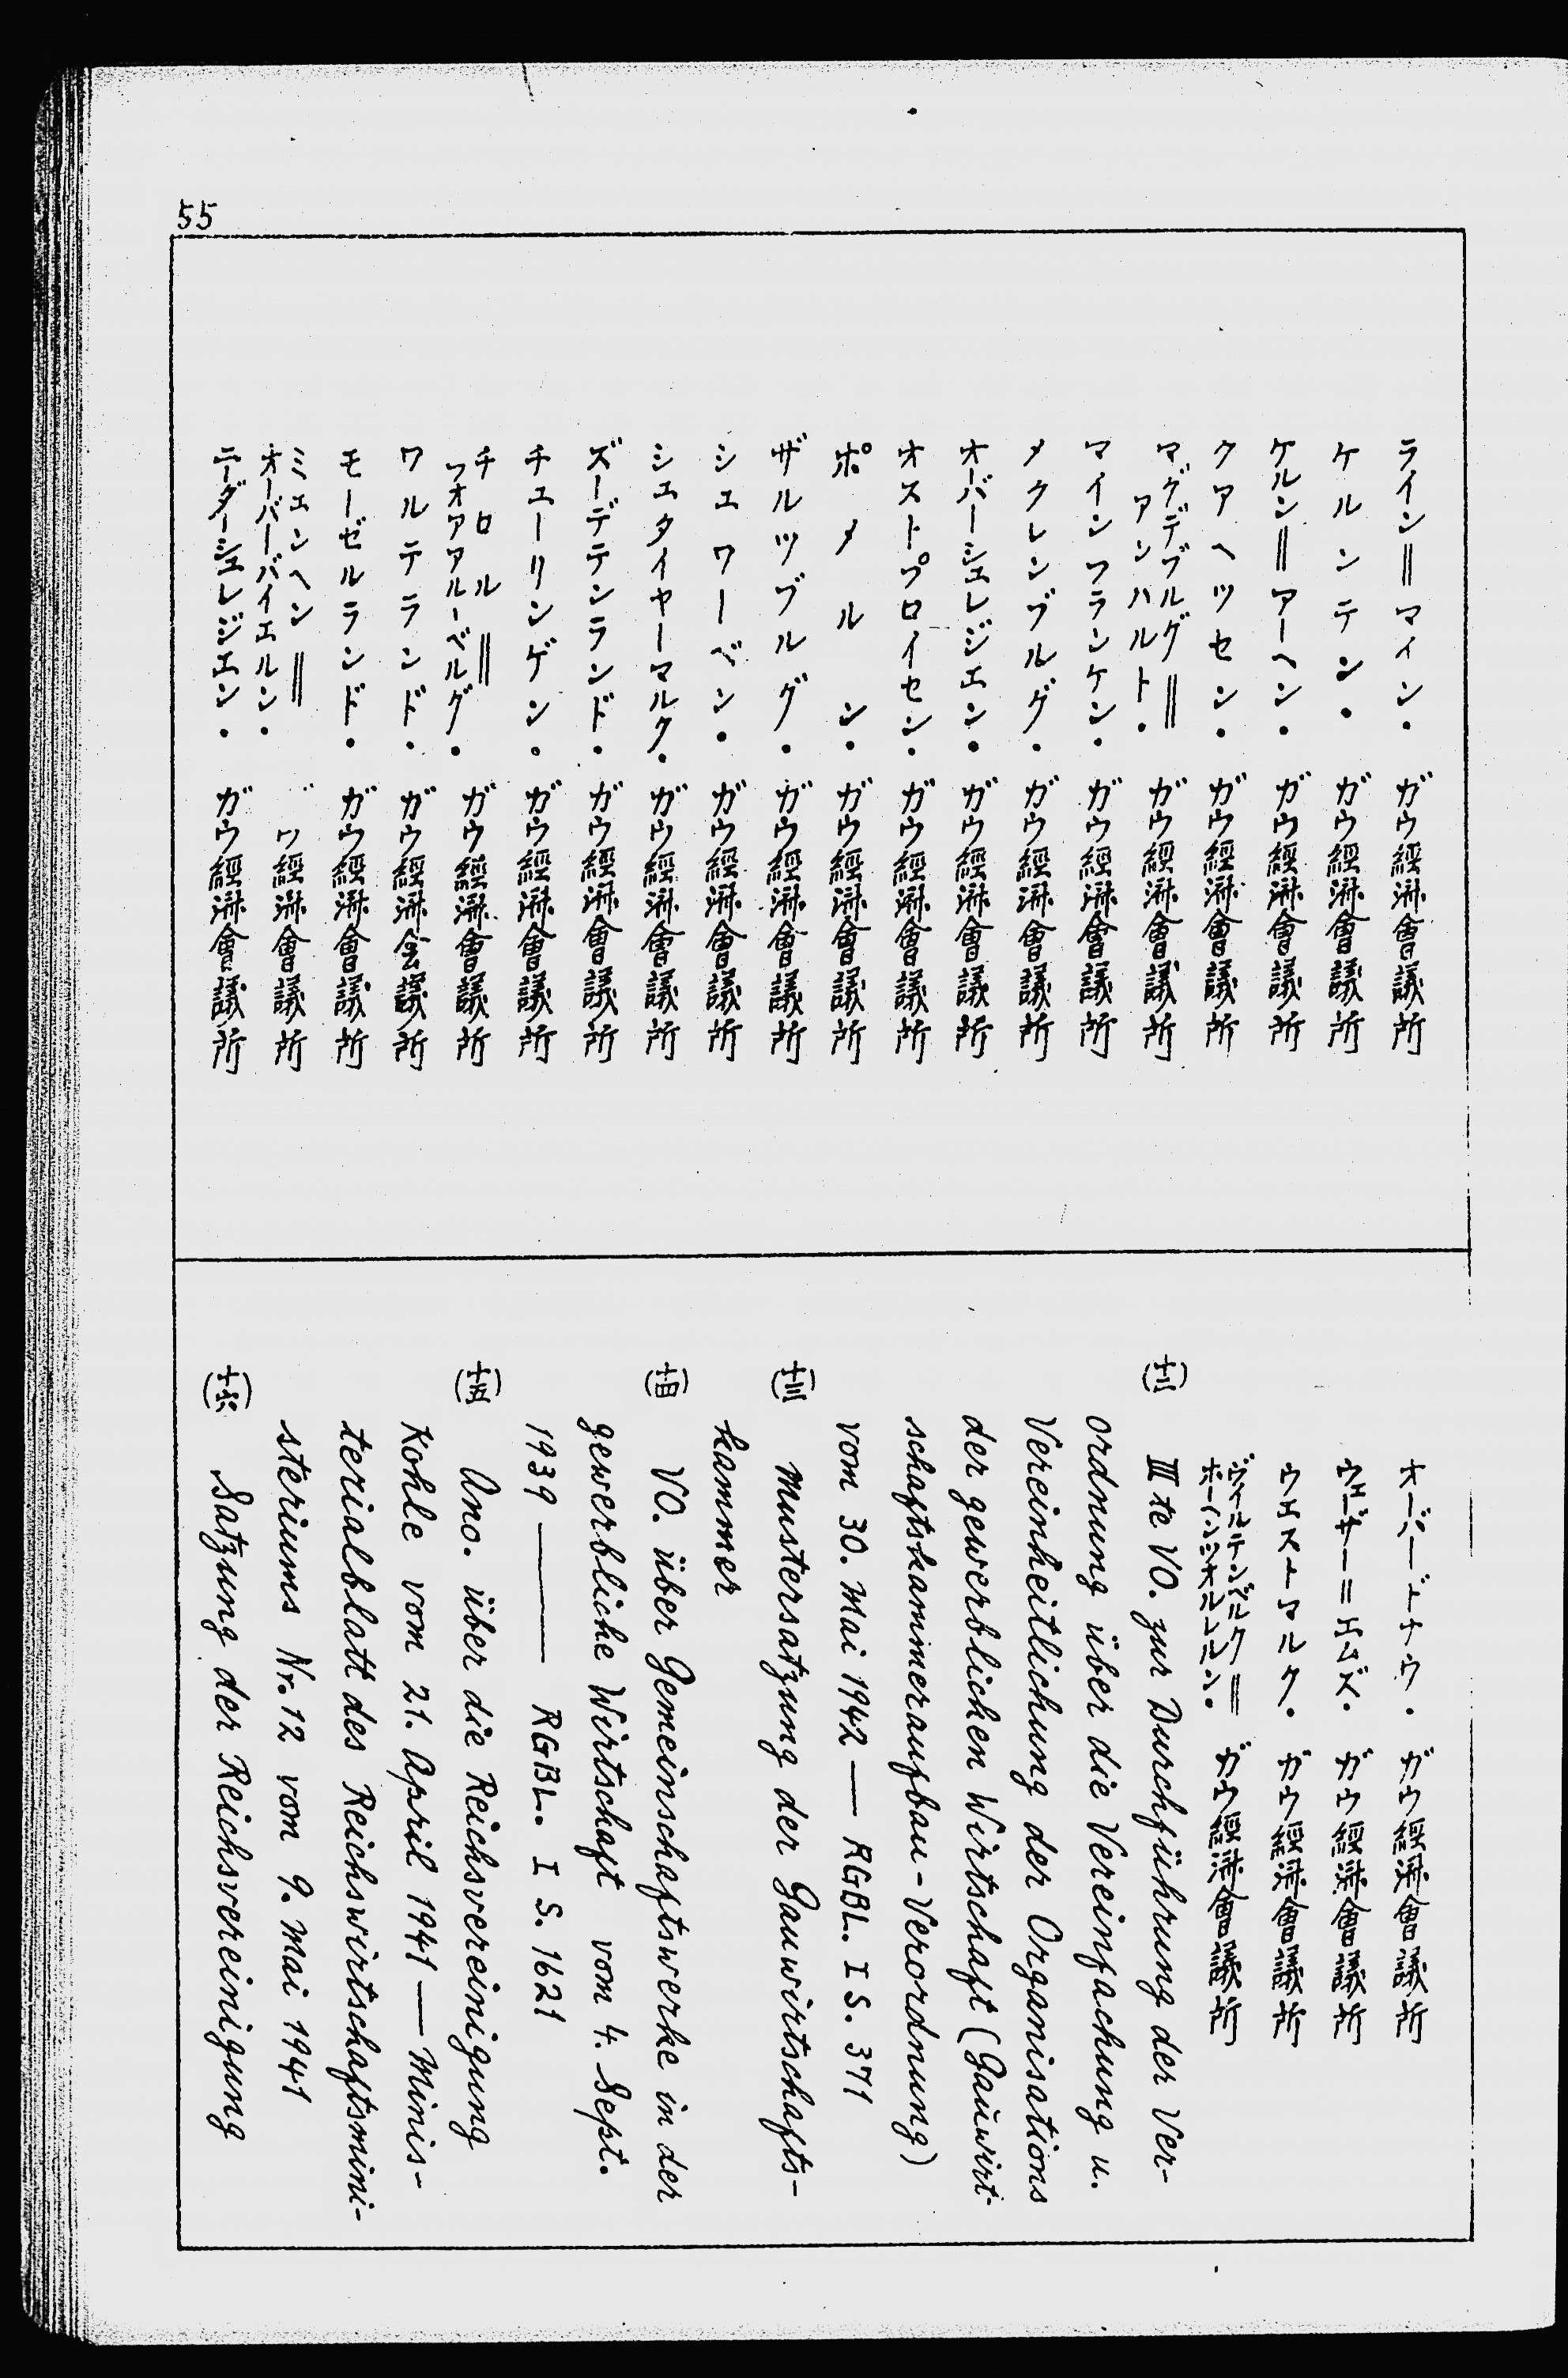 55
ライン＝マイン・ガウ經濟會議所
ケルンテン・ガウ經濟會議所
ケルン＝アーヘン・ガウ經濟會議所
クアヘッセン・ガウ經濟會議所
マグデブルグ＝アンハルト・ガウ經濟會議所
マインフランケン・ガウ經濟會議所
メクレンブルグ・ガウ經濟會議所
オーバーシュレジエン・ガウ經濟會議所
オストプロイセン・ガウ經濟會議所
ポメルン・ガウ經濟會議所
ザルツブルグ・ガウ經濟會議所
シュワーベン・ガウ經濟會議所
シュタイヤーマルク・ガウ經濟會議所
ズーデテンランド・ガウ經濟會議所
チューリンゲン・ガウ經濟會議所
チロル＝フォアアルーベルグ・ガウ經濟會議所
ワルテランド・ガウ經濟会議所
モーゼルランド・ガウ經濟會議所
ミュンヘン＝オーバーバイエルン・ガウ經濟會議所
ニーダーシュレジエン・ガウ經濟會議所
オーバードナウ・ガウ經濟會議所
ウェーザー＝エムズ・ガウ經濟會議所
ウエストマルク・ガウ經濟會議所
ヴィルテンベルク＝ホーヘンツオルレルン・ガウ經濟會議所
(十二) III te VO. zur Durchführung der Ver-
ordnung über die Vereinfachung u.
Vereinheitlichung der Organisations
der gewerblichen Wirtschaft (Gauwirt-
schaftskammeraufbau-Verordnung)
vom 30. Mai 1942 — RGBL. I S. 371
(十三) Mustersatzung der Gauwirtschafts-
kammer
(十四) VO. über Gemeinschaftswerke in der
gewerbliche Wirtschaft vom 4. Sept.
1939 —— RGBL. I S. 1621
(十五) Ano. über die Reichsvereinigung
Kohle vom 21. April 1941 — Minis-
terialblatt des Reichswirtschaftsmini-
steriums Nr. 12 von 9. Mai 1941
(十六) Satzung der Reichsvereinigung